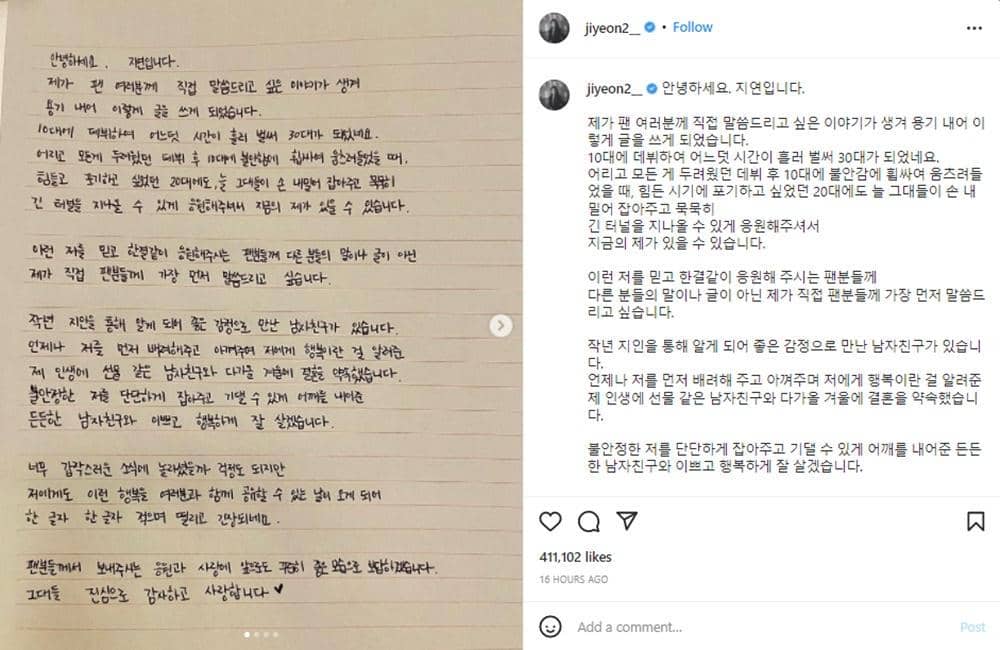 안녕하세요. 지연입니다.
제가 팬 여러분께 직접 말씀드리고 싶은 이야기가 생겨
용기 내어 이렇게 글을 쓰게 되었습니다.
10대에 데뷔하여 어느덧 시간이 흘러 벌써 30대가 되었네요.
어리고 모든게 두려웠던 데뷔 후 10대에 불안감에 휩싸여 움츠러들었을 때,
힘들고 포기하고 싶었던 20대에도, 늘 그대들이 손 내밀어 잡아주고 묵묵히
긴 터널을 지나올 수 있게 응원해주셔서 지금의 제가 있을 수 있습니다.
이런 저를 믿고 한결같이 응원해주시는 팬분들께 다른 분들의 말이나 글이 아닌
제가 직접 팬분들께 가장 먼저 말씀드리고 싶습니다.
작년 지인을 통해 알게 되어 좋은 감정으로 만난 남자친구가 있습니다.
언제나 저를 먼저 배려해주고 아껴주며 저에게 행복이란 걸 알려준
제 인생에 선물 같은 남자친구와 다가올 겨울에 결혼을 약속했습니다.
불안정한 저를 단단하게 잡아주고 기댈 수 있게 어깨를 내어준
든든한 남자친구와 이쁘고 행복하게 잘 살겠습니다.
너무 갑작스러운 소식에 놀라셨을까 걱정도 되지만
저에게도 이런 행복을 여러분과 함께 공유할 수 있는 날이 오게 되어
한 글자 한 글자 적으며 떨리고 긴장되네요.
팬분들께서 보내주시는 응원과 사랑에 앞으로도 꾸준히 좋은 모습으로 보답하겠습니다.
그대들 진심으로 감사하고 사랑합니다 ♥
jiyeon2__ • Follow
jiyeon2__ 안녕하세요. 지연입니다.
제가 팬 여러분께 직접 말씀드리고 싶은 이야기가 생겨 용기 내어 이
렇게 글을 쓰게 되었습니다.
10대에 데뷔하여 어느덧 시간이 흘러 벌써 30대가 되었네요.
어리고 모든 게 두려웠던 데뷔 후 10대에 불안감에 휩싸여 움츠러들
었을 때, 힘든 시기에 포기하고 싶었던 20대에도 늘 그대들이 손 내
밀어 잡아주고 묵묵히
긴 터널을 지나올 수 있게 응원해주셔서
지금의 제가 있을 수 있습니다.
이런 저를 믿고 한결같이 응원해 주시는 팬분들께
다른 분들의 말이나 글이 아닌 제가 직접 팬분들께 가장 먼저 말씀드
리고 싶습니다.
작년 지인을 통해 알게 되어 좋은 감정으로 만난 남자친구가 있습니
다.
언제나 저를 먼저 배려해 주고 아껴주며 저에게 행복이란 걸 알려준
제 인생에 선물 같은 남자친구와 다가올 겨울에 결혼을 약속했습니
다.
불안정한 저를 단단하게 잡아주고 기댈 수 있게 어깨를 내어준 든든
한 남자친구와 이쁘고 행복하게 잘 살겠습니다.
411,102 likes
16 HOURS AGO
Add a comment... Post